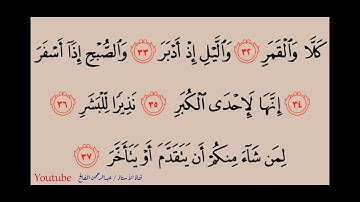 كَلَّا وَالْقَمَرِ ٣٢ وَالَّيْلِ إِذْ أَدْبَرَ ٣٣ وَالصُّبْحِ إِذَآ أَسْفَرَ
٣٤ إِنَّهَا لَإِحْدَى الْكُبَرِ ٣٥ نَذِيرًا لِّلْبَشَرِ ٣٦
لِمَن شَآءَ مِنكُمْ أَن يَتَقَدَّمَ أَوْ يَتَأَخَّرَ ٣٧
Youtube قناة الأستاذ / عبدالرحمن